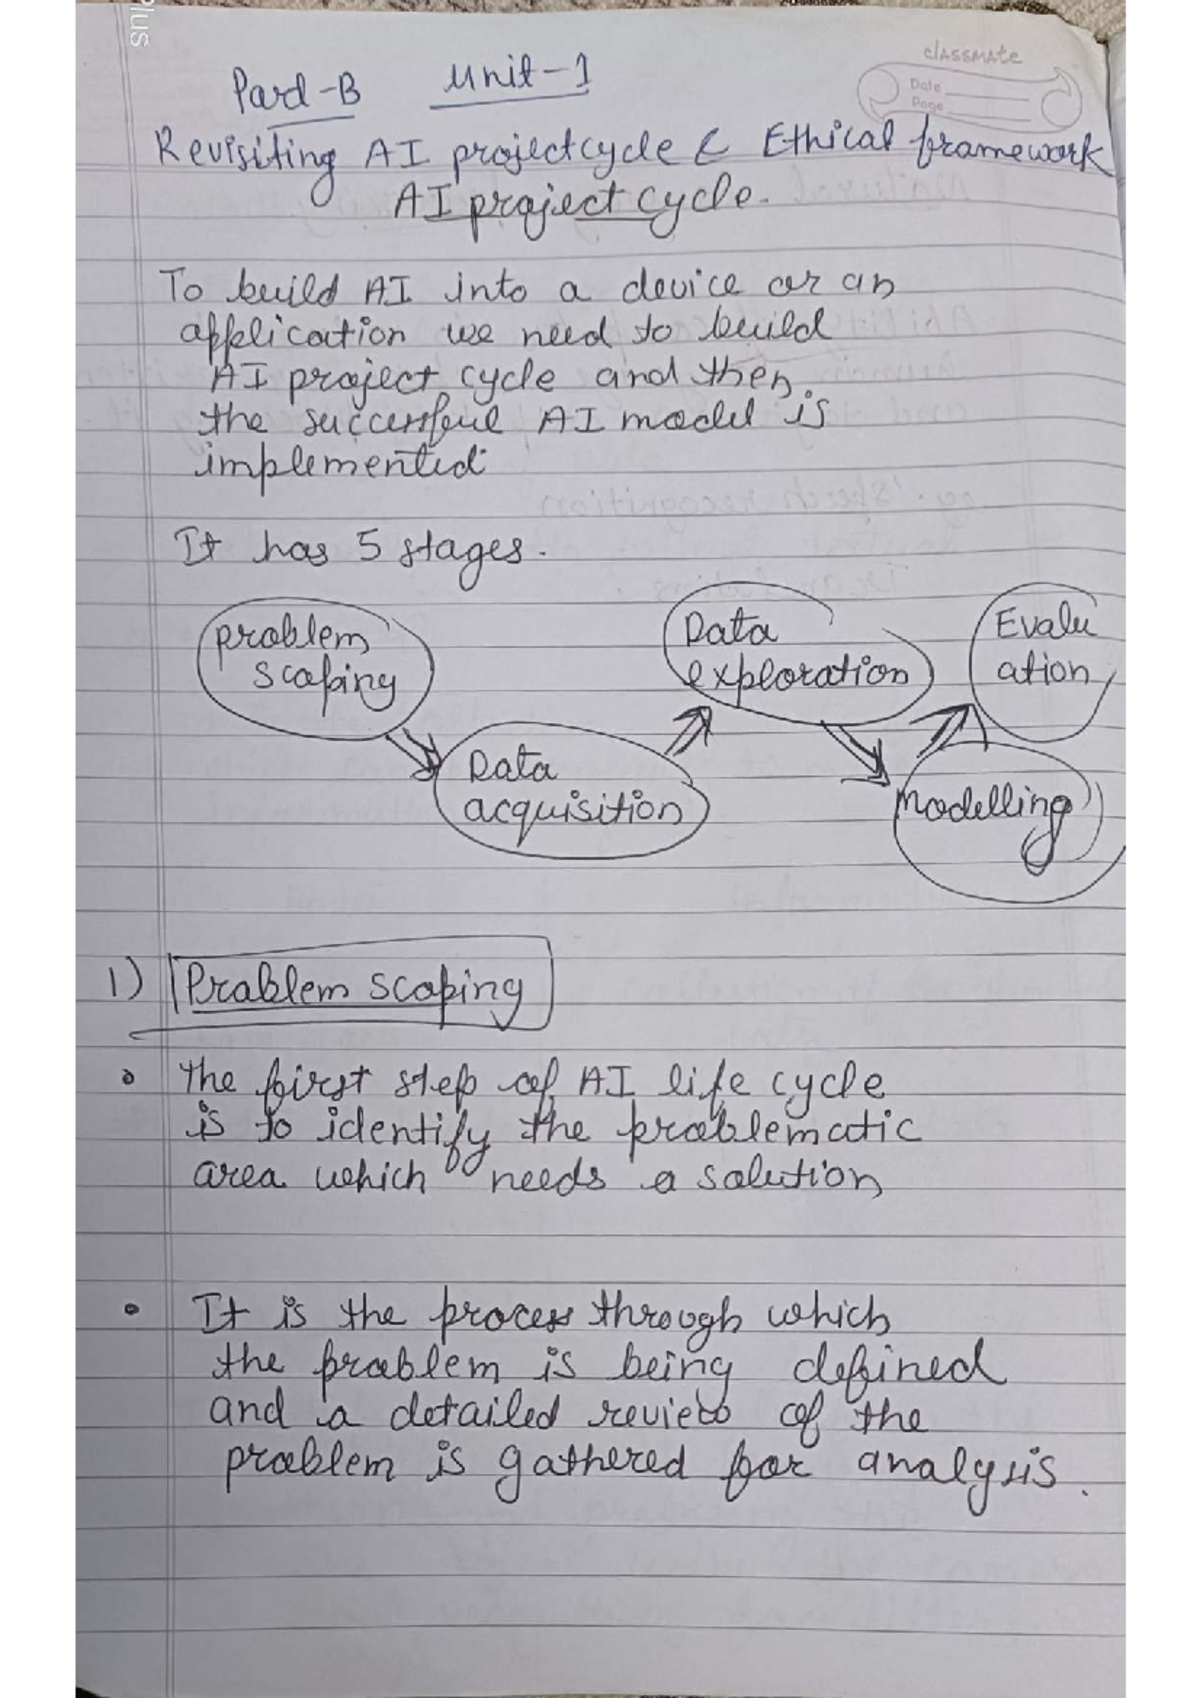 Plus
classmate
Date
Page
Part-B Unit-1
Revisiting AI projectcycle & Ethical framework
AI project cycle.
To build AI into a device or an
application we need to build
AI project cycle and then
the successful AI model is
implemented
It has 5 stages.
problem
scoping
Data
acquisition
Data
exploration
modelling
Evalu
ation
1) Problem scoping
• The first step of AI life cycle
is to identify the problematic
area which needs a solution
• It is the process through which
the problem is being defined
and a detailed review of the
problem is gathered for analysis.